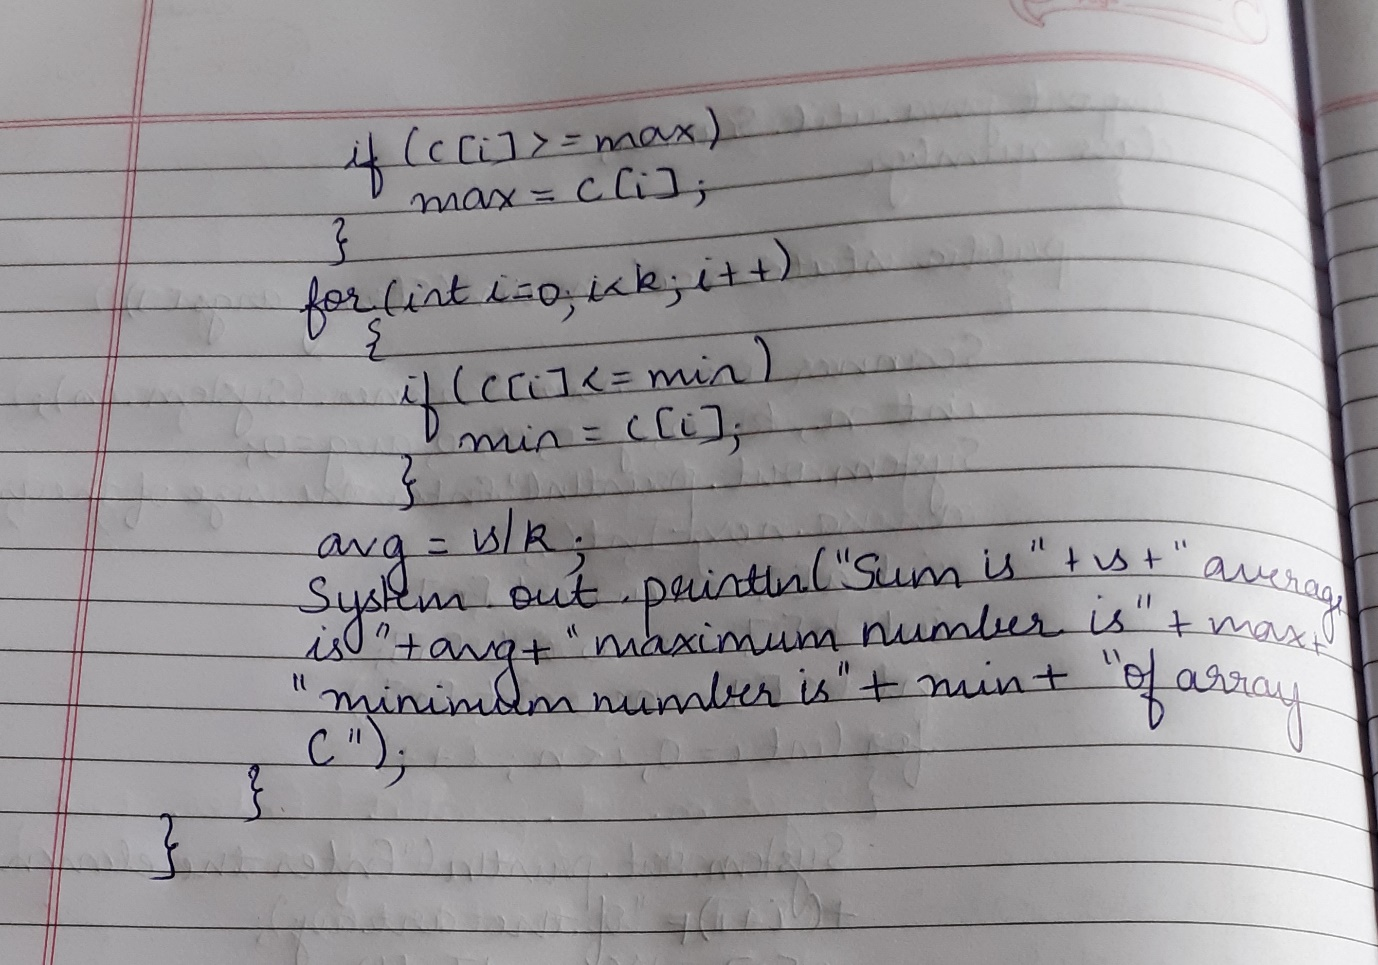 if (c[i]>=max)
max = c[i];
}
for(int i=0; i<k; i++)
{
if (c[i]<=min)
min = c[i];
}
avg = s/k;
System.out.println("Sum is" +s+" average
is"+avg+ "maximum number is" + max+
"minimum number is" + min+ "of array
C");
}
}